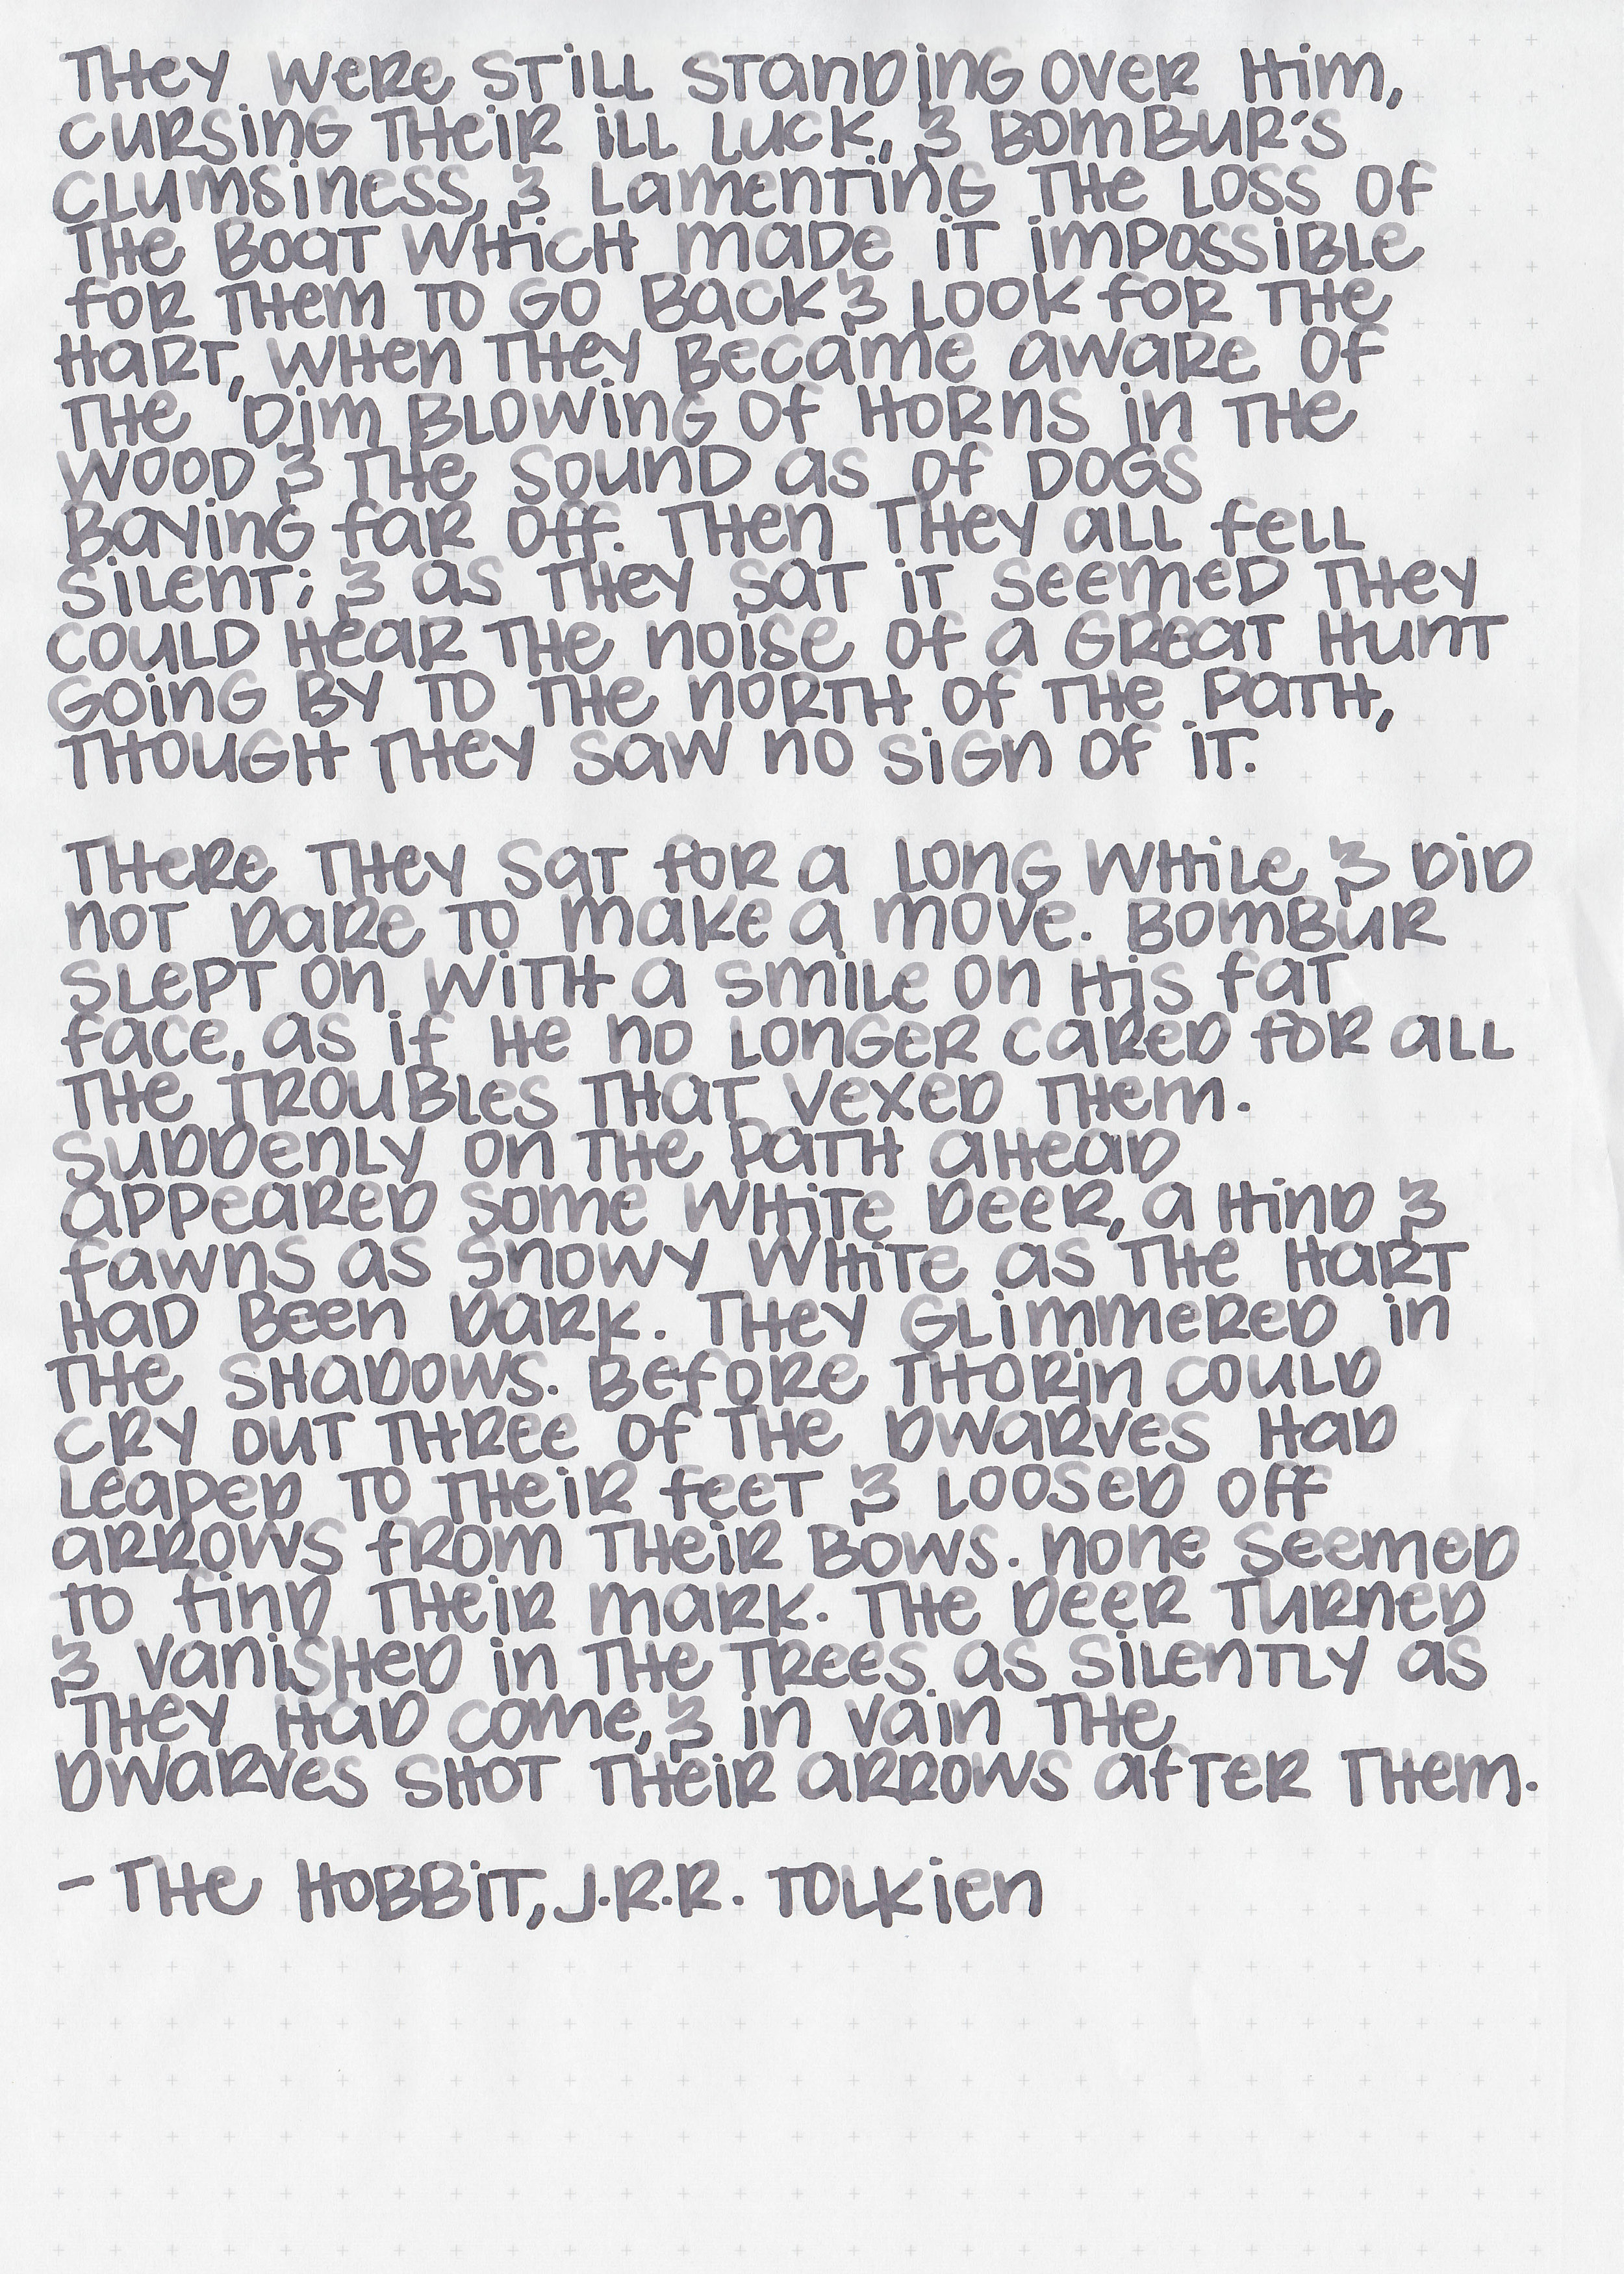 They were still standing over him,
cursing their ill luck, & Bombur's
clumsiness, & lamenting the loss of
the boat which made it impossible
for them to go back & look for the
hart, when they became aware of
the dim blowing of horns in the
wood & the sound as of dogs
baying far off. Then they all fell
silent; & as they sat it seemed they
could hear the noise of a great hunt
going by to the north of the path,
though they saw no sign of it.

There they sat for a long while & did
not dare to make a move. Bombur
slept on with a smile on his fat
face, as if he no longer cared for all
the troubles that vexed them.
Suddenly on the path ahead
appeared some white deer, a hind &
fawns as snowy white as the hart
had been dark. They glimmered in
the shadows. Before Thorin could
cry out three of the dwarves had
leaped to their feet & loosed off
arrows from their bows. None seemed
to find their mark. The deer turned
& vanished in the trees as silently as
they had come, & in vain the
dwarves shot their arrows after them.

- The Hobbit, J.R.R. Tolkien